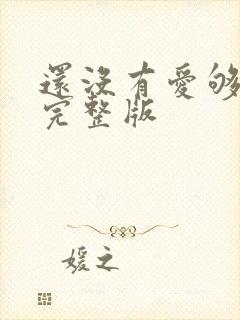 還沒有愛够
完整版
媛之